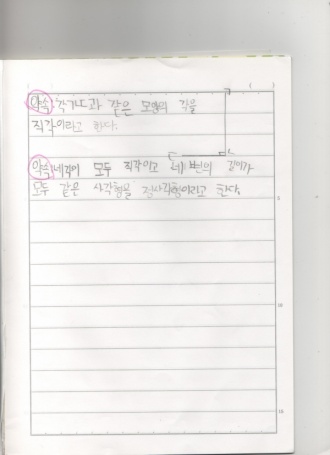 약속:각ㄱㄴㄷ과 같은 모양의 각을
직각이라고 한다.
약속:네각이 모두 직각이고 네 변의 길이가
모두 같은 사각형을 정사각형이라고 한다.
5
10
15